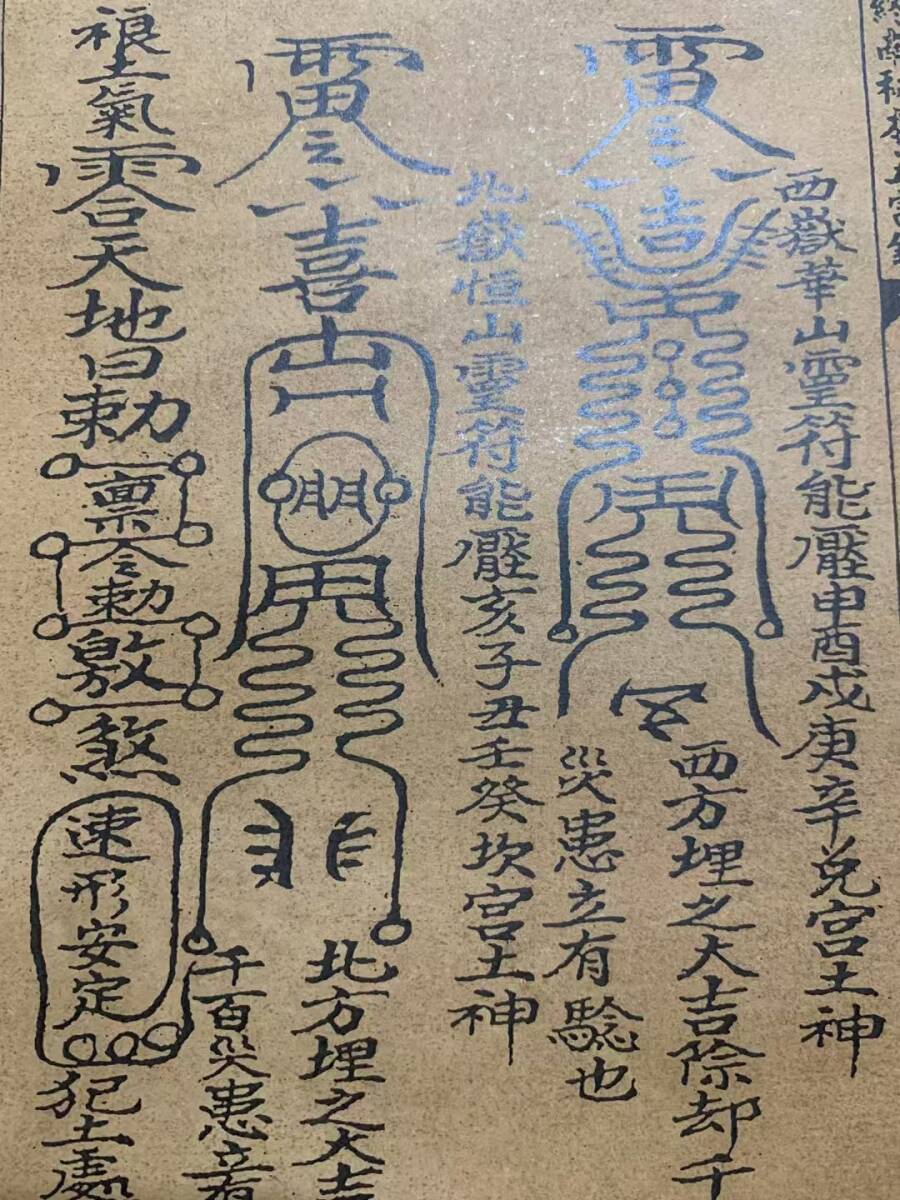 西嶽華山霊符能壓申酉戌庚辛兌宮土神
雷
吉
西方埋之大吉除却千
災患立有驗也
北嶽恒山霊符能壓亥子丑壬癸坎宮土神
雷
喜
山
朋
北方埋之大吉
千百災患立有
土氣
天地曰勅
禀令勅
煞
速形安定
犯土處